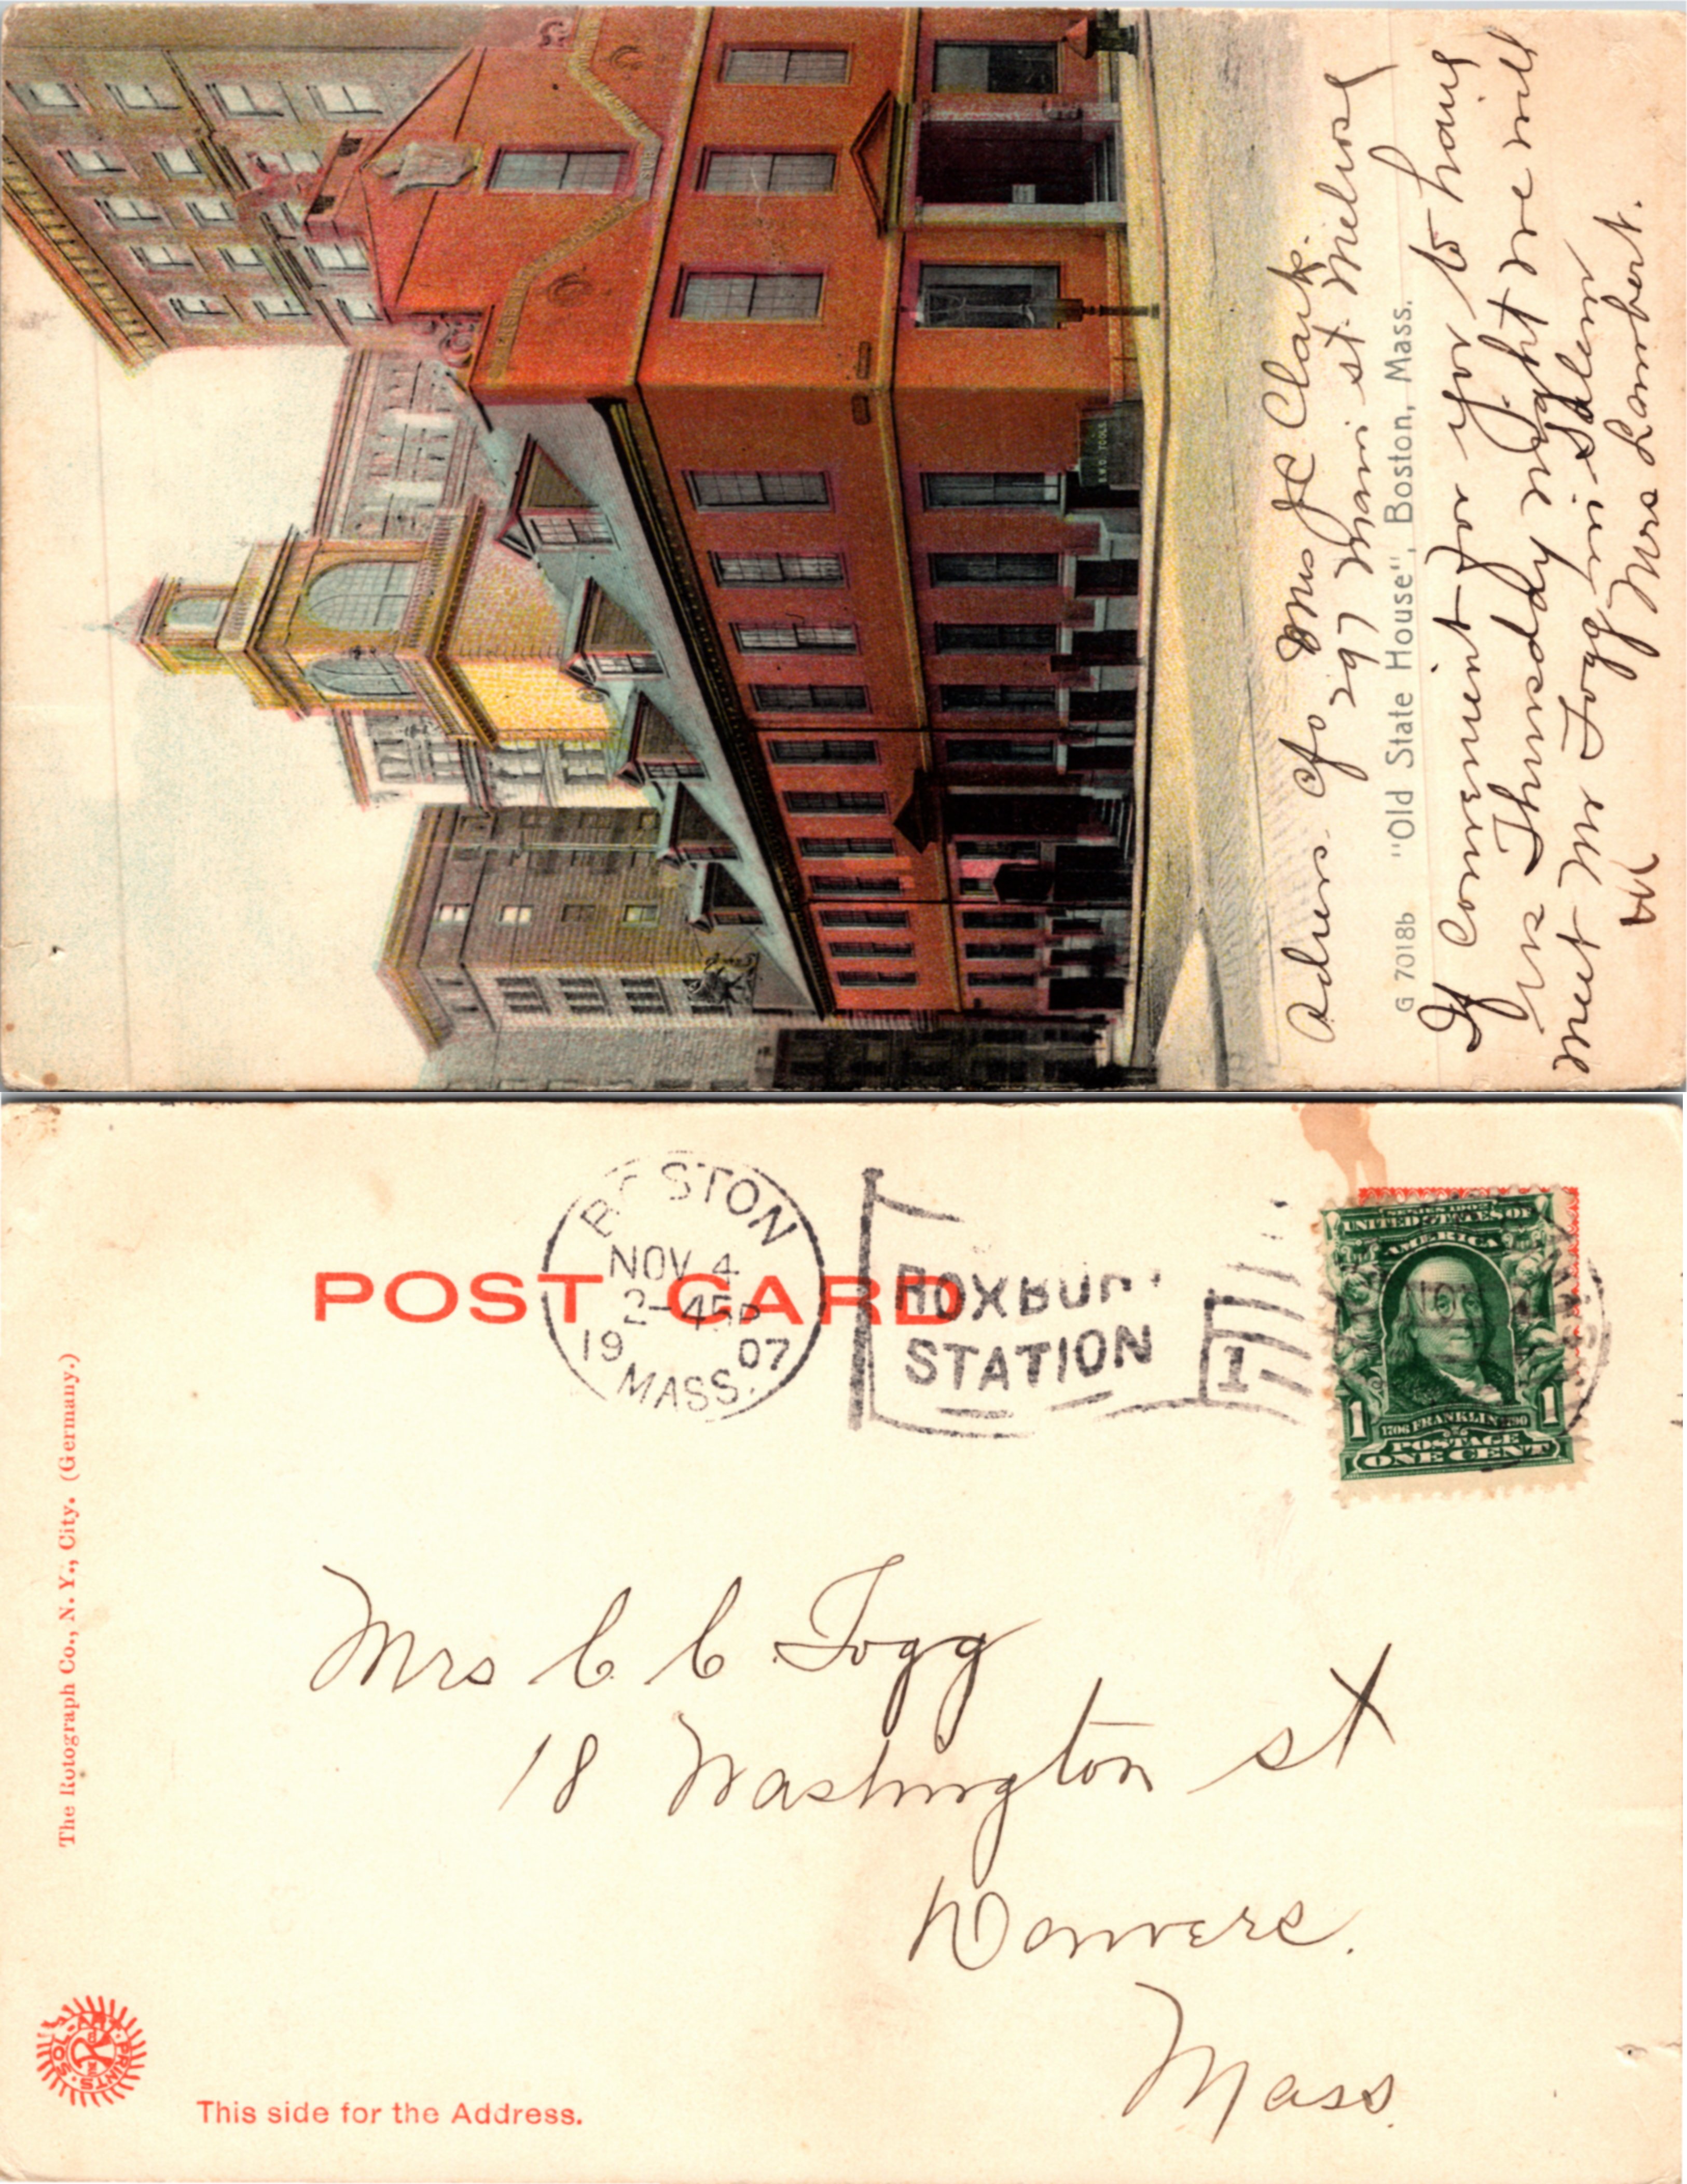 Adress. c/o Mrs J C Clark.
297 Main st. Melrose
G 7018b "Old State House", Boston, Mass.
If Convenient for you to have
us Thursday night we will
meet Mr Fogg in Salem
Mrs Lambert.
MASSACHUSETTS
TOOLS
POST CARD
BOSTON
NOV 4
2-45P
19 07
MASS.
ROXBURY
STATION
1
SERIES 1902
UNITED STATES OF
AMERICA
1 1706 FRANKLIN 1790 1
POSTAGE
ONE CENT
The Rotograph Co., N. Y., City. (Germany.)
Mrs C C Fogg
18 Washington st
Danvers.
Mass.
SOL-ART PRINTS
This side for the Address.